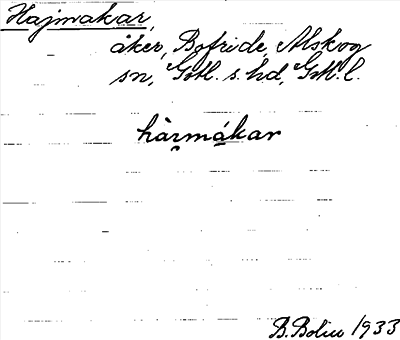 Hajmakar,
åker, Bofride, Alskog
sn, Gotl. s. hd, Gotl. l.
hàrmákar
B. Bolin 1933